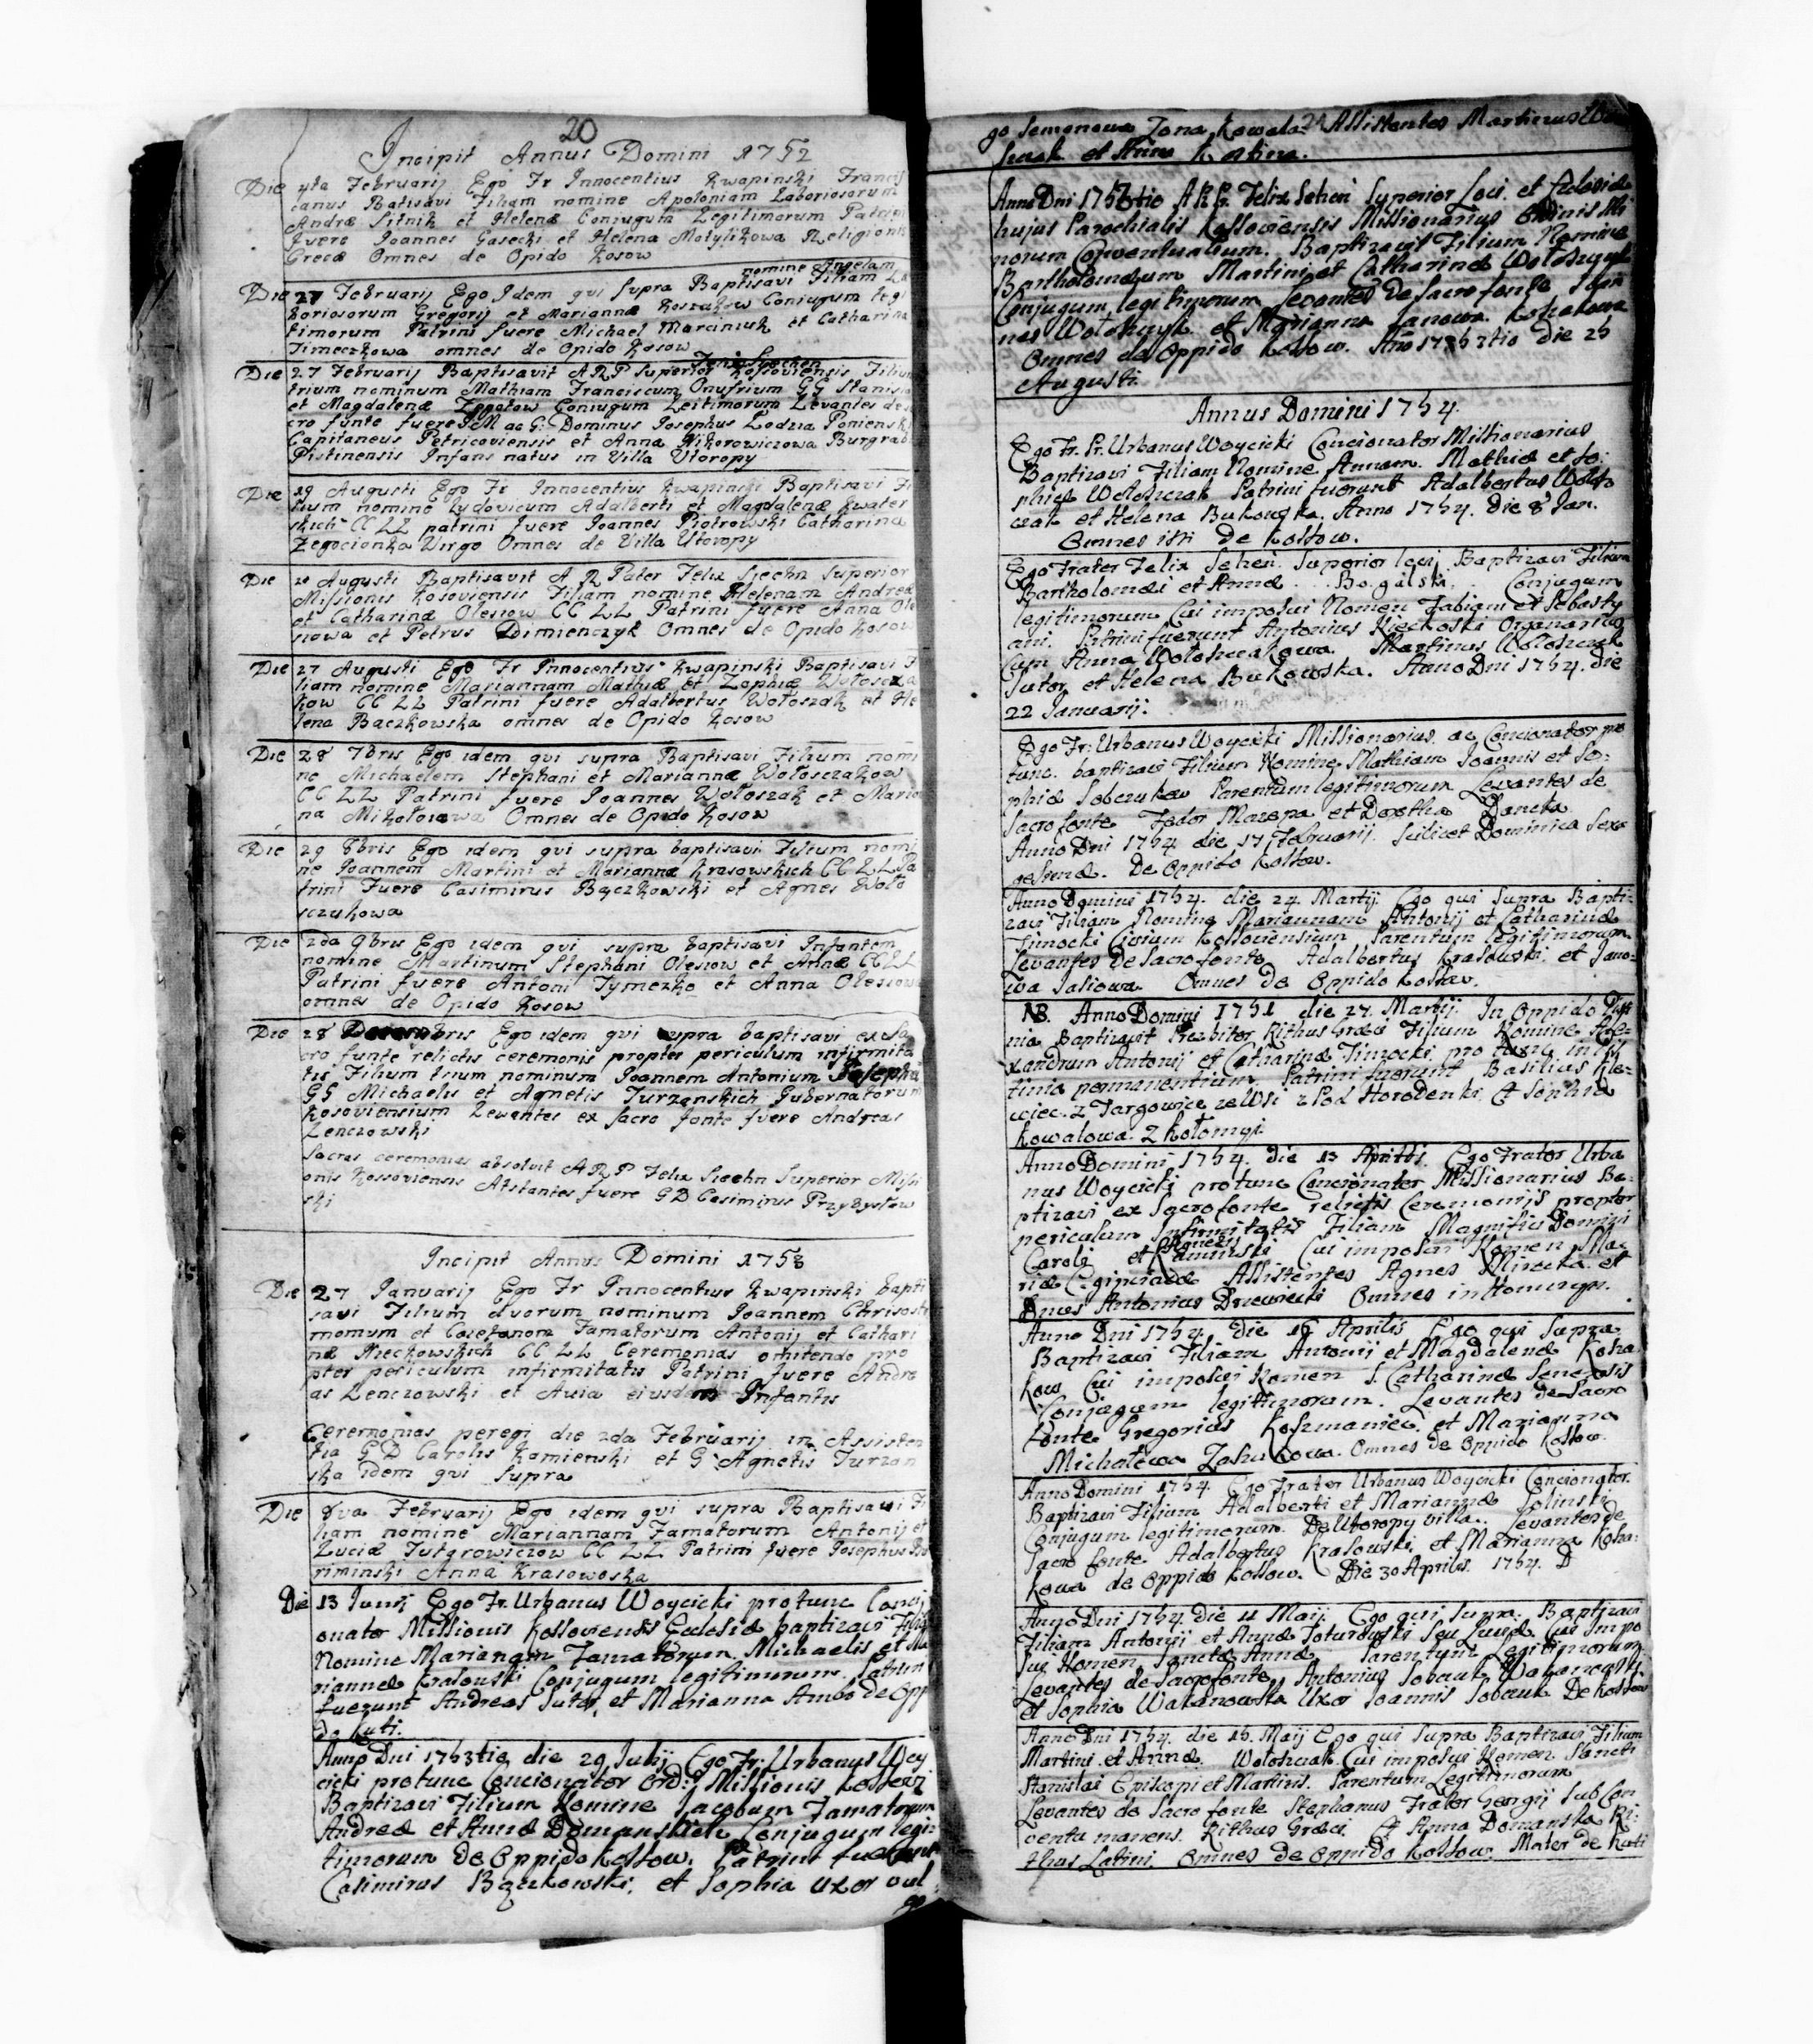 20
Incipit Annus Domini 1752
Die 4ta Februarij Ego Fr Innocentius Kwapinski Francis
canus Batisavi Filiam nomine Apoloniam Laboriosorum
Andræ Sitnik et Helenæ Coniugum Legitimorum Patrini
fuere Joannes Gasecki et Helena Motylikowa Religionis
Grecæ Omnes de Opido Kosow
nomine Angelam
Die 27 Februarij Ego Idem qui supra Baptisavi Filiam La
boriosorum Gregorij et Mariannæ Koszakow Coniugum legi
timorum Patrini fuere Michael Marciniuk et Catharina
Timeczkowa omnes de Opido Kosow
Die 27 Februarij Baptisavit A R P Superior Kossoviensis Filium
trium nominum Mathiam Franciscum Onufrium GG Stanis
et Magdalenæ Zgotow Coniugum Leitimorum Levantes de
cro funte fuere M ac G. Dominus Josephus Lodzia Poninski
Capitaneus Petricoviensis et Anna Nikorowiczowa Burgrab
Pistinensis Infans natus in Villa Utoropy
Die 19 Augusti Ego Fr Innocentius Kwapinski Baptisavi Fi
lium nomine Ludovicum Adalberti et Magdalenæ Kwater
skich CC LL patrini fuere Joannes Piotrowski Catharina
Zegocionka Virgo Omnes de Villa Utoropy
Die 20 Augusti Baptisavit A R Pater Felix Siechn Superior
Missionis Kosoviensis Filiam nomine Helenam Andreæ
et Catharinæ Olesiow CC LL Patrini fuere Anna Ole
siowa et Petrus Dimienczyk Omnes de Opido Kosow
Die 27 Augusti Ego Fr Innocentius Kwapinski Baptisavi F
liam nomine Mariannam Mathiæ et Zophiæ Wołoscza
kow CC LL Patrini fuere Adalbertus Wołoszak et He
lena Baczkowska omnes de Opido Kosow
Die 28 7bris Ego idem qui supra Baptisavi Filium nomi
ne Michaelem Stephani et Mariannæ Wołosczakow
CC LL Patrini fuere Joannes Wołoszak et Maria
na Mikołoiowa Omnes de Opido Kosow
Die 29 8bris Ego idem qui supra baptisavi Filium nomi
ne Joannem Martini et Mariannæ Krasowskich CC LL Pa
trini Fuere Casimirus Bączkowski et Agnes Woło
sczukowa
Die 2da 9bris Ego idem qui supra baptisavi Infantem
nomine Martinum Stephani Olesiow et Annæ CC LL
Patrini fuere Antoni Tymezko et Anna Olesiowa
omnes de Opido Kosow
Die 28 Decembris Ego idem qui supra baptisavi ex Sa
cro funte relictis ceremonis propter periculum infirmita
tis Filium trium nominum Joannem Antonium Josephu
GG Michaelis et Agnetis Turzanskich Gubernatorum
Kosoviensium Lewantes ex sacro fonte fuere Andreas
Lenczowski
Sacras ceremonias absolvit A R P Felix Siechn Superior Missi
onis Kossoviensis Atstantes fuere G D Casimirus Przybysław
ski
Incipit Annus Domini 1753
Die 27 Januarij Ego Fr Innocentius Kwapinski bapti
savi Filium duorum nominum Joannem Chrisosto
momum et Caietanom Famatorum Antonij et Cathari
næ Nieckowskich CC LL Ceremonias omitendo pro
pter periculum infirmitatis Patrini fuere Andre
as Lenczowski et Avia eiusdem Infantis
Ceremonias peregi die 2da Februarij in Assisten
tia G D Carolis Kamienski et G Agnetis Turzan
ska idem qui supra
Die 8va Februarij Ego idem qui supra Baptisavi Fi
liam nomine Mariannam Famatorum Antonij et
Luciæ Tutgrowiczow CC LL Patrini fuere Josephus
riminski Anna Krasowoska
Die 13 Junij Ego Fr. Urbanus Woycicki protunc Conci
onator Missionis Kossoviensis Ecclesiæ baptizavi Filia
Nomine Mariannam Famatorum Michaelis et Ma
riannæ Krasouski Conjugum legitimorum. Patrini
fuerunt Andreas Sutor, et Marianna Ambo de Opp
do Kuti.
Anno Dni 1753tio die 29 Julij Ego Fr: Urbanus Woy
cicki protunc Concionator Ord: Missionis Kossowi
Baptizavi Filium Nomine Jacobum Famatorum
Andreæ et Annæ Domanskich Conjugum legi
timorum De Oppido Kossow. Patrini fuerunt
Casimirus Bączkowski, et Sophia Uxor vul
go
go Semenowa Zona Kowala. 21 Assistentes Martinus Wo
sczak et Anna
Anno Dni 1753tio A R P. Felix Sehen Superior Loci et Ecclesiæ
hujus Parochialis Kossoviensis Missionarius Ord. Minis Mi
norum Conventualium. Baptizavit Filium Nomine
Bartholomæum Martini et Catharinæ Wołoszczuk
Conjugum legitimorum Levantes de Sacro fonte Joan
nes Wołoszczyk et Marianna Janowa Kozakowa
Omnes de Oppido Kossow. Ano 1753tio Die 25
Augusti.
Annus Domini 1754.
Ego Fr. Pr. Urbanus Woycicki Concionator Missionarius
Baptizavi Filiam Nomine Annam. Mathiæ et So:
phiæ Wołoszczak Patrini fuerunt Adalbertus Wołos
czak et Helena Bukouska. Anno 1754. Die 8 Jan.
Omnes isti De Kossow.
Ego Frater Felix Sehen Superior loci Baptizavi Filium
Bartholomæi et Annæ Bogalska. Conjugum
legitimorum Cui imposui Nomen Fabiam et Sebasty
ani. Patrini fuerunt Antonius Kieckoski Organarius
Cum Anna Wołoszczakowa. Martinus Wołoszczak
Sutor et Helena Bukowska. Anno Dni 1754. Die
22 Januarij.
Ego Fr: Urbanus Woycicki Missionarius ac Concionator pro
tunc. baptizavi Filium Nomine Mathiam Joannis et So:
phiæ Sobczukow Parentum legitimorum Levantes de
Sacro fonte Fedor Mazepa et Dorotha Daneka
Anno Dni 1754 die 17 Februarij. Scilicet Dominica Sexa
gesimæ. De Oppido Kossow.
Anno Domini 1754. die 24. Martij. Ego qui Supra Bapti:
zavi Filiam Nomine Mariannam Antonij et Catharinæ
Jimocki Civium Kossoviensium Parentum legitimorum
Levantes De Sacro fonte Adalbertus Krasouski et Jano:
wa Jasiowa. Omnes De Oppido Kossow.
NB. Anno Domini 1751 die 27. Martij. In Oppido Pisti
nia Baptizavit Prezbiter Rithus Græci Filium Nomine Ale:
xandrum Antonij et Catharinæ Jimocki pro tunc in Pis
tinia permanentium. Patrini fuerunt Basilius Kle:
wiec. z Targowice ze Wsi z Pod Horodenki, Et Sophia
Kowalowa z Kołomyi.
Anno Domini 1754. die 13 Aprilis. Ego Frater Urba
nus Woycicki protunc Concionator Missionarius Ba:
ptizavi ex Sacro fonte relictis Ceremonijs propter
periculum Infirmitatis Filiam Magnifici Domini
Caroli et Kaminski Cui imposui Nomen Ma
riæ Egipciacæ Assistentes Agnes Mirecka et
Dnus Antonius Drzewiecki Omnes in
Anno Dni 1754. Die 16 Aprilis Ego qui Supra
Baptizavi Filiam Antonij et Magdalenæ Koza
kow Cui imposui Nomen S. Catharinæ Senensis
Conjugum legitimorum. Levantes de Sacro
Fonte Gregorius Koszmaniec et Marianna
Michałowa Omnes de Oppido Kossow.
Anno Domini 1754. Ego Frater Urbanus Woycicki Concionator.
Baptizavi Filium Adalberti et Mariannæ Solinski
Conjugum legitimorum. De Utoropy villa. Levantes de
Sacro fonte Adalbertus Krasowski et Marianna Koza:
kowa de Oppido Kossow. Die 30 Aprilis. 1754. D
Anno Dni 1754. Die 11 Maij. Ego qui Supra. Baptizavi
Filiam Antonij et Annæ Cui Impo
sui Nomen Sanctæ Annæ Parentum Legitimorum
Levantes de Sacro fonte, Antonius Sobczuk
et Sophia Wakanowska Uxor Joannis Sobczuk De Kossow
Anno Dni 1754. die 15. Maij Ego qui Supra Baptizavi Filium
Martini et Annæ. Wołoszczak Cui imposui Nomen Sancti
Stanislai Episcopi et Martiris. Parentum Legitimorum
Levantes de Sacro fonte Stephanus Frater Georgij Sub Con
ventu manens. Rithus Græci Et Anna Domanska Ri:
thus Latini. Omnes de Oppido Kossow. Mater de Kuti